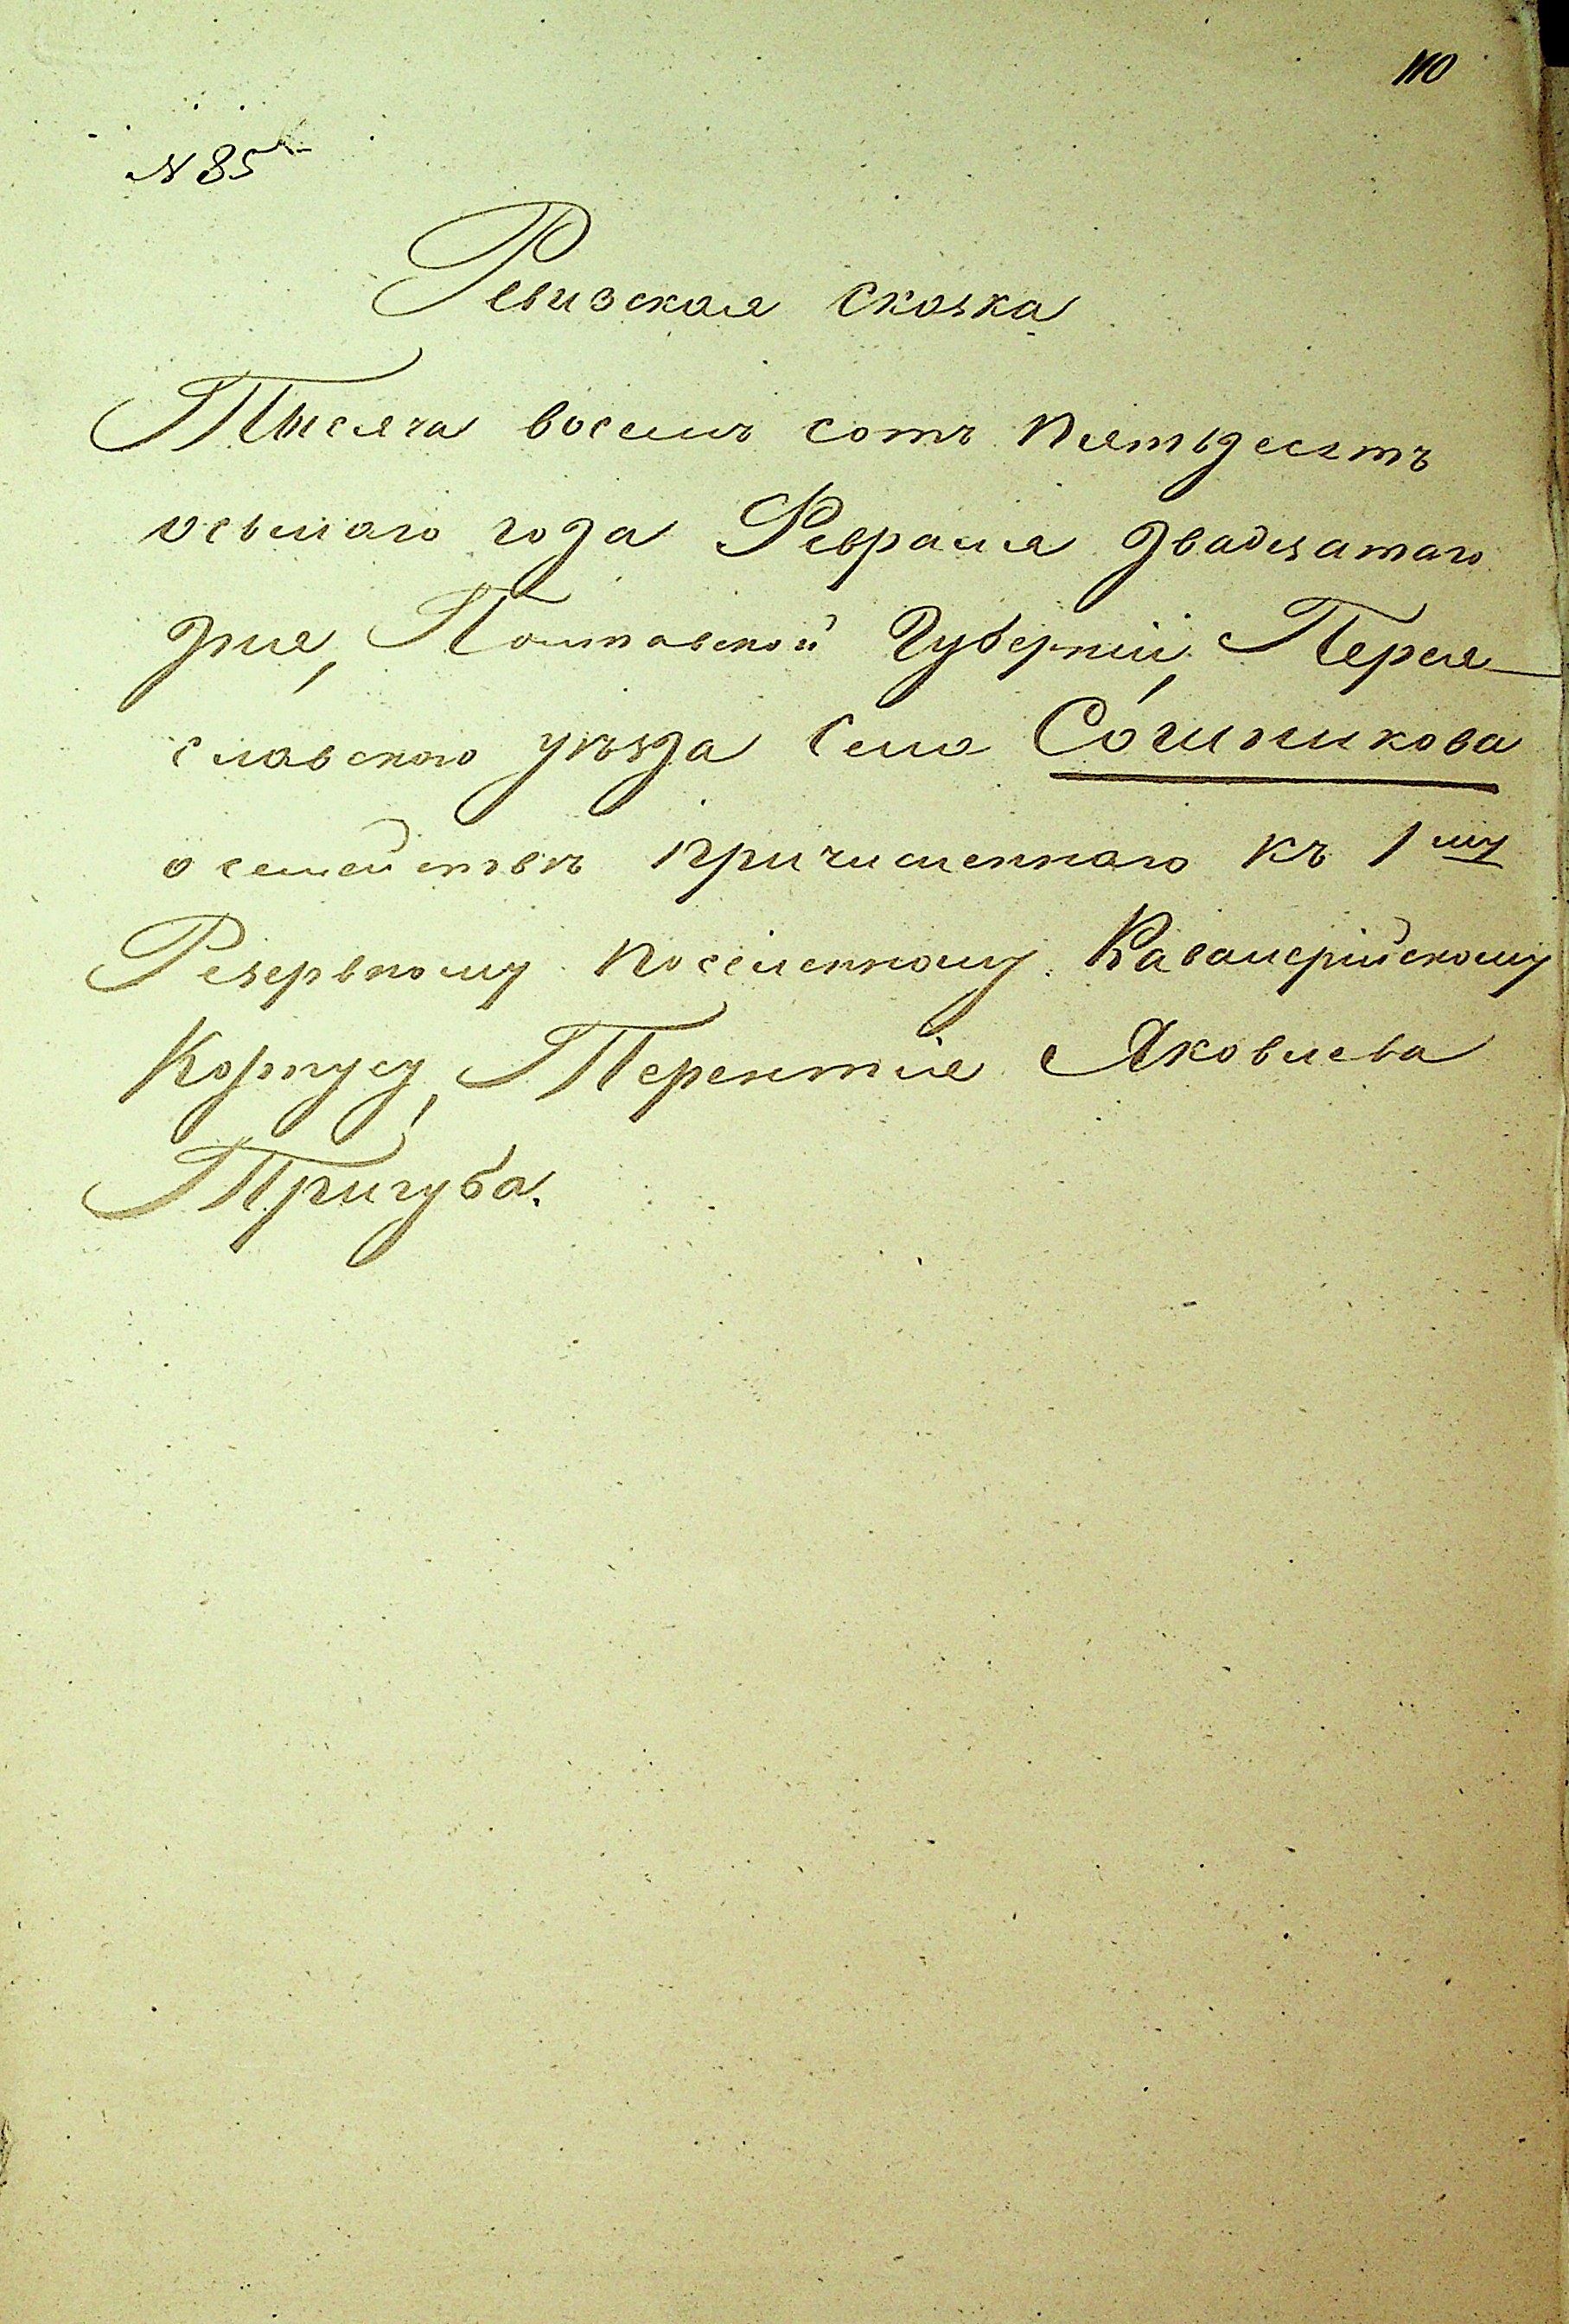 110
№ 85
Ревизская сказка
Тысяча восемь сотъ пятьдесятъ
осьмаго года Февраля двадцатаго
дня, Полтавской Губерніи, Перея-
славского уѣзда Села Сошникова
о семействѣ причисленнаго къ 1му
Резервному поселенному Кавалерійскому
Корпусу, Терентія Яковлева
Тригуба.